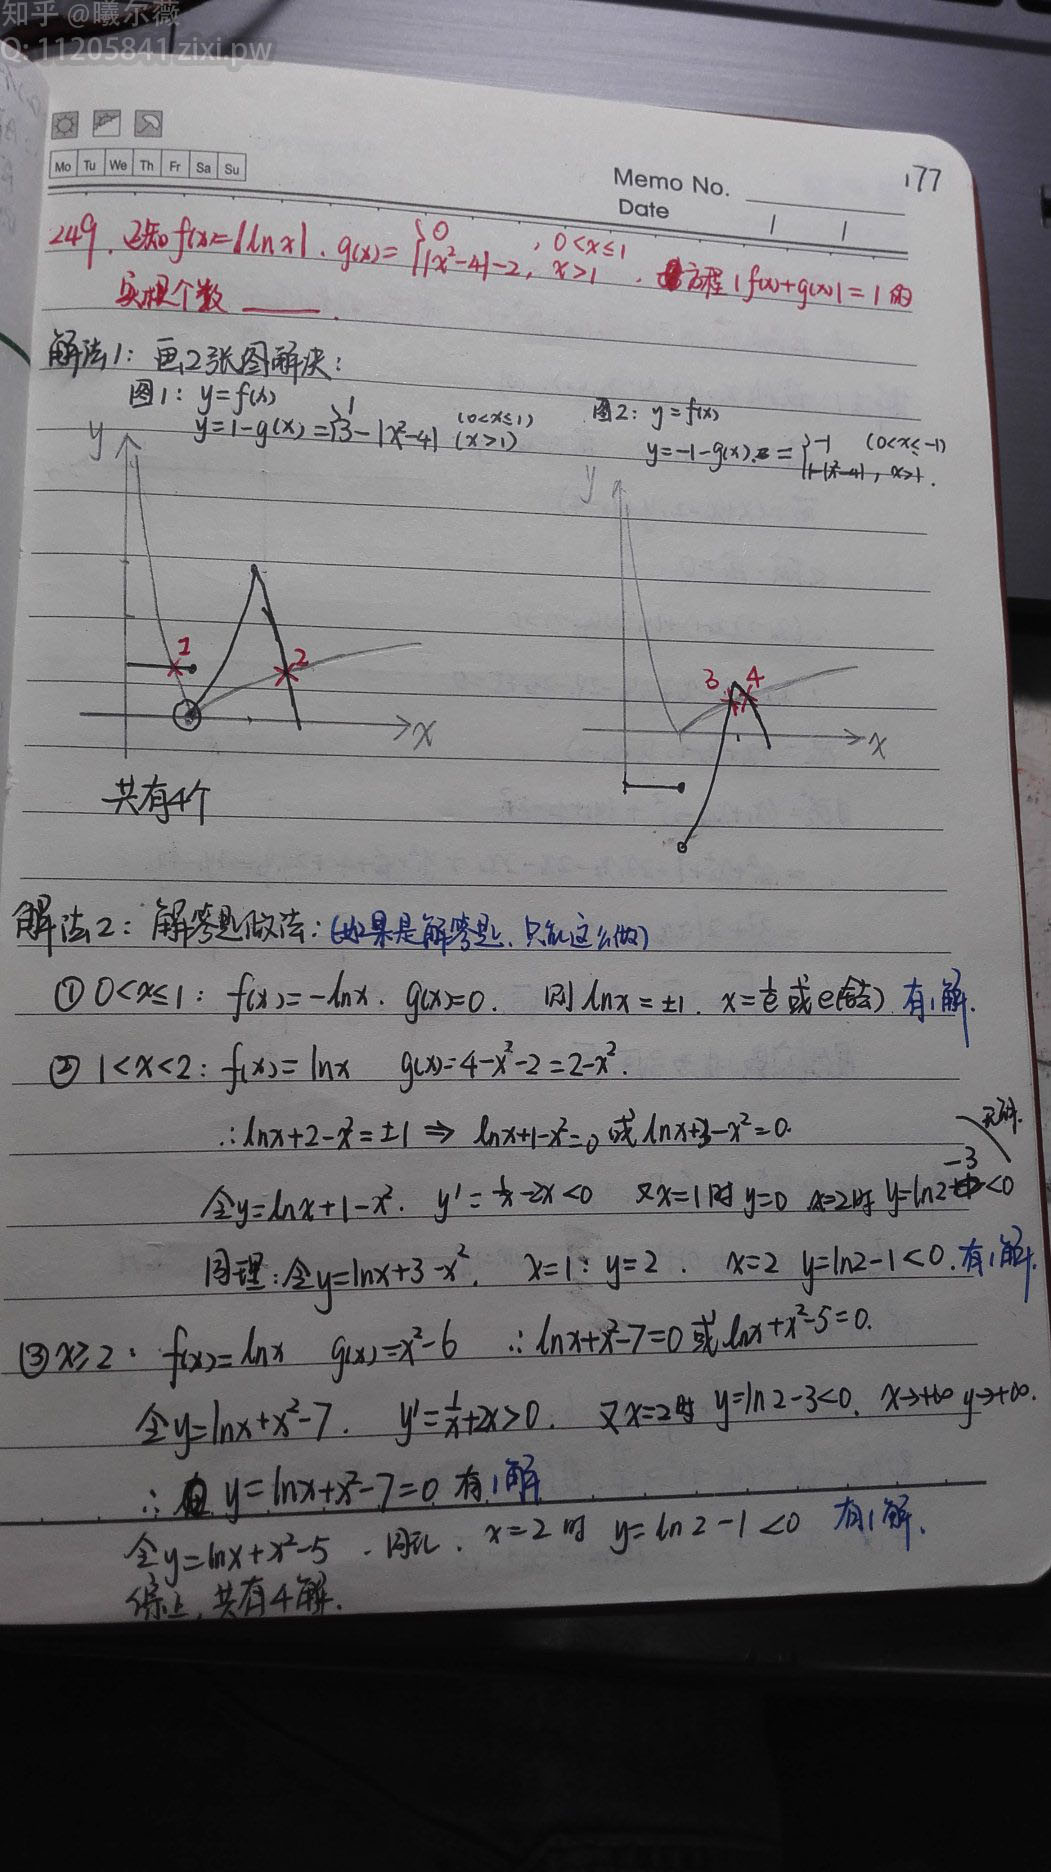 知乎 @曦尔薇
Q: 11205841 zixi.pw
Mo Tu We Th Fr Sa Su
Memo No. 177
Date / /
249. 已知f(x)=|lnx|. g(x)={0, 0<x≤1
||x²-4|-2, x>1. 方程|f(x)+g(x)|=1的
实根个数 ____.
解法1: 画2张图解决:
图1: y=f(x)
y=1-g(x)={1 (0<x≤1)
3-|x²-4| (x>1)
图2: y=f(x)
y=-1-g(x)={-1 (0<x≤-1)
1-|x²-4|, x>1.
y
1
2
x
y
3
4
x
共有4个
解法2: 解答题做法: (如果是解答题、只能这么做)
① 0<x≤1: f(x)=-lnx. g(x)=0. 则lnx=±1. x=1/e或e(舍去) 有1解.
② 1<x<2: f(x)=lnx g(x)=4-x²-2=2-x².
∴lnx+2-x²=±1 ⇒ lnx+1-x²=0 或 lnx+3-x²=0.
无解.
令y=lnx+1-x². y'=1/x-2x<0 又x=1时y=0 x=2时 y=ln2-3<0
同理:令y=lnx+3-x². x=1: y=2. x=2 y=ln2-1<0. 有1解.
③ x≥2: f(x)=lnx g(x)=x²-6 ∴lnx+x²-7=0或lnx+x²-5=0.
令y=lnx+x²-7. y'=1/x+2x>0. 又x=2时 y=ln2-3<0. x→+∞ y→+∞.
∴ y=lnx+x²-7=0 有1解
令y=lnx+x²-5. 同理. x=2时 y=ln2-1<0 有1解.
综上, 共有4解.